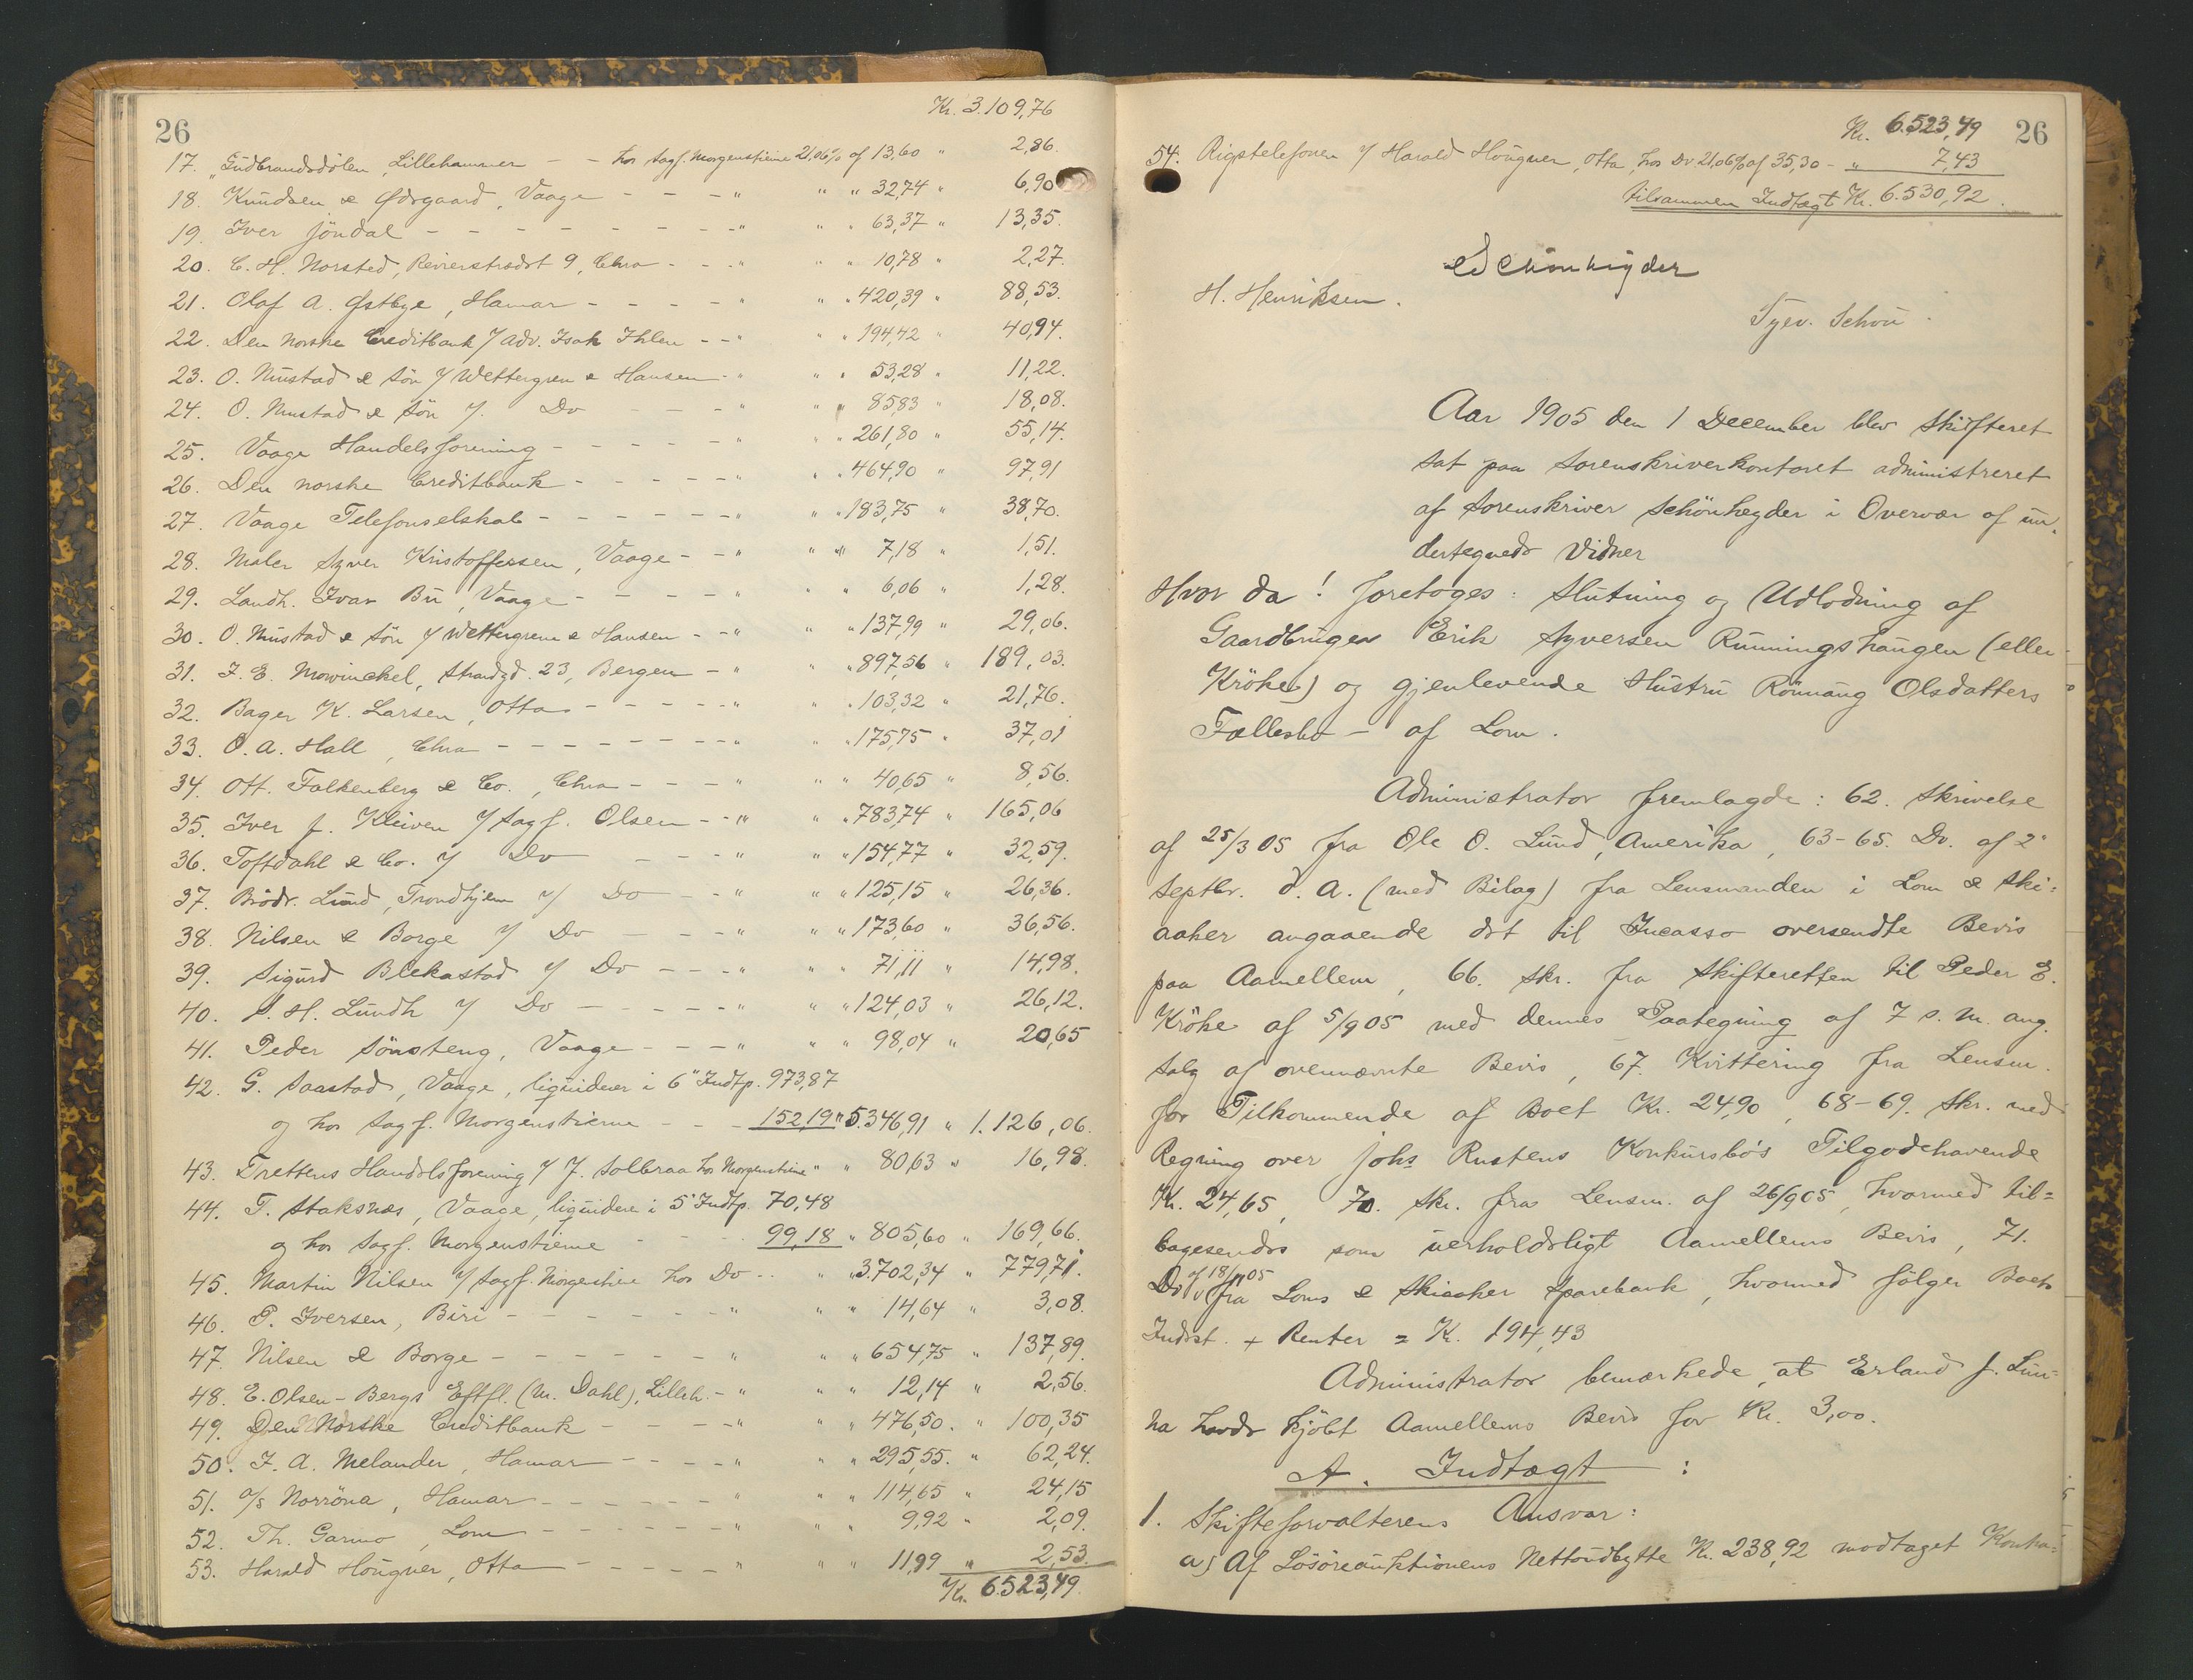 Kr. 3.109,76
26
17. "Gudbrandsdölen", Lillehammer - - hos Sagf. Morgenstierne 21,06% af 13,60 " 2,86.
18. Knudsen & Ødegaard, Vaage - - - " " " 32,74 " 6,90
19. Iver Jöndal - - - - - - - - - " " " 63,37 " 13,35.
20. C. H. Norsted, Revierstrædet 9, Chra - - - " " " 10,78 " 2,27.
21. Olaf A. Østbye, Hamar - - - - - " " " 420,39 " 88,53.
22. Den norske Creditbank 7/ Adv. Isak Ihlen - - " " " 194,42 " 40,94.
23. O. Mustad & Sön 7/ Wettergren & Hansen - " " " 53,28 " 11,22.
24. O. Mustad & Sön 7/. Do - - - " " " 85,83 " 18,08.
25. Vaage Handelsforening - - - - - - " " " 261,80 " 55,14.
26. Den norske Creditbank - - - - - " " " 464,90 " 97,91
27. Vaage Telefonselskab - - - - - - " " " 183,75 " 38,70.
28. Maler Syver Kristoffersen, Vaage - - " " " 7,18 " 1,51.
29. Landh. Ivar Bu, Vaage - - - - - " " " 6,06 " 1,28.
30. O. Mustad & Sön 7/ Wettergren & Hansen - - " " " 137,99 " 29,06.
31. J. E. Mowinckel, Strandgd. 23, Bergen - " " " 897,56 " 189,03.
32. Bager K. Larsen, Otta - - - - - - " " " 103,32 " 21,76.
33. O. A. Hall, Chra - - - - - - - - " " " 175,75 " 37,01
34. Ott. Falkenberg & Co., Chra - - - - " " " 40,65 " 8,56.
35. Iver J. Kleiven 7/ Sagf. Olsen - - " " " 783,74 " 165,06
36. Toftdahl & Co. 7/ Do - - - " " " 154,77 " 32,59.
37. Brödr. Lund, Trondhjem 7/ Do - - " " " 125,15 " 26,36.
38. Nilsen & Borge 7/ Do - - - - " " " 173,60 " 36,56.
39. Sigurd Blekastad 7/ Do - - - " " " 71,11 " 14,98.
40. S. H. Lundh 7/ Do - - - - - " " " 124,03 " 26,12.
41. Peder Sönsteng, Vaage - - - - " " " 98,04 " 20,65
42. G. Saastad, Vaage, liquiderer i 6" Indtp. 973,87
og hos Sagf. Morgenstierne - - - 152,19 " 5.346,91 " 1.126,06.
43. Trettens Handelsforening 7/ J. Solbraa hos Morgenstierne " " 80,63 " 16,98.
44. T. Staksnæs, Vaage, liquidere i 5" Indtp. 70,48
og hos Sagf. Morgenstierne - - - 99,18 " 805,60 " 169,66.
45. Martin Nilsen 7/ Sagf. Morgenstierne hos Do - - " " 3.702,34 " 779,71.
46. P. Iversen, Biri - - - - - - - " " " 14,64 " 3,08.
47. Nilsen & Borge - - - - - - - " " " 654,75 " 137,89.
48. E. Olsen-Bergs Eftfl. (M. Dahl), Lilleh. - " " " 12,14 " 2,56.
49. Den Norske Creditbank - - - - - " " " 476,50. " 100,35
50. J. A. Melander, Hamar - - - - " " " 295,55. " 62,24.
51. A/S Norröna, Hamar - - - - - - " " " 114,65 " 24,15
52. Th. Garmo, Lom - - - - - - " " " 9,92 " 2,09.
53. Harald Hougner, Otta - - - - - " " " 11,99 " 2,53.
Kr. 6.523,49.
Kr. 6.523,49 26
54. Rigstelefonen 7/ Harald Hougner, Otta, hos Do 21,06% af 35,30 - " 7,43
tilsammen Indtægt Kr. 6.530,92.
E Schönheyder
H. Henriksen.
Syev. Schou.
Aar 1905 den 1 December blev Skifteret
sat paa Sorenskriverkontoret administreret
af Sorenskriver Schönheyder i Overvær af un-
dertegnede Vidner
Hvor da! foretoges: Slutning og Udlodning af
Gaardbruger Erik Syversen Runningshaugen (eller
Kröke) og gjenlevende Hustru Rönnaug Olsdatters
Fællesbo - af Lom.
Administrator fremlagde: 62. Skrivelse
af 25/3 05 fra Ole O. Lund, Amerika, 63-65. Do. af 2"
Septbr. d. A. (med Bilag) fra Lensmanden i Lom & Ski=
aaker angaaende det til Incasso oversendte Bevis
paa Aamellem, 66. Skr. fra Skifteretten til Peder E.
Kröke af 5/9 05 med dennes Paategning af 7 s. M. ang.
Salg af ovennævnte Bevis, 67. Kvittering fra Lensm.
for Tilkommende af Boet Kr. 24,90, 68-69. Skr. med
Regning over Johs Rustens Konkursbo's Tilgodehavende
Kr. 24,65, 70. Skr. fra Lensm. af 26/9 05, hvormed til=
bagesendes som uerholdeligt Aamellems Bevis, 71.
Do af 18/11 05 fra Loms & Skiaaker Sparebank, hvormed fölger Boets
Indst. + Renter = K. 194,43
Administrator bemærkede, at Erland J. Lun-
na havde kjöbt Aamellems Bevis for Kr. 3,00.
A. Indtægt:
1. Skifteforvalterens Ansvar:
a) Af Lösöreauktionens Nettoudbytte Kr. 238,92 modtaget Kontra=